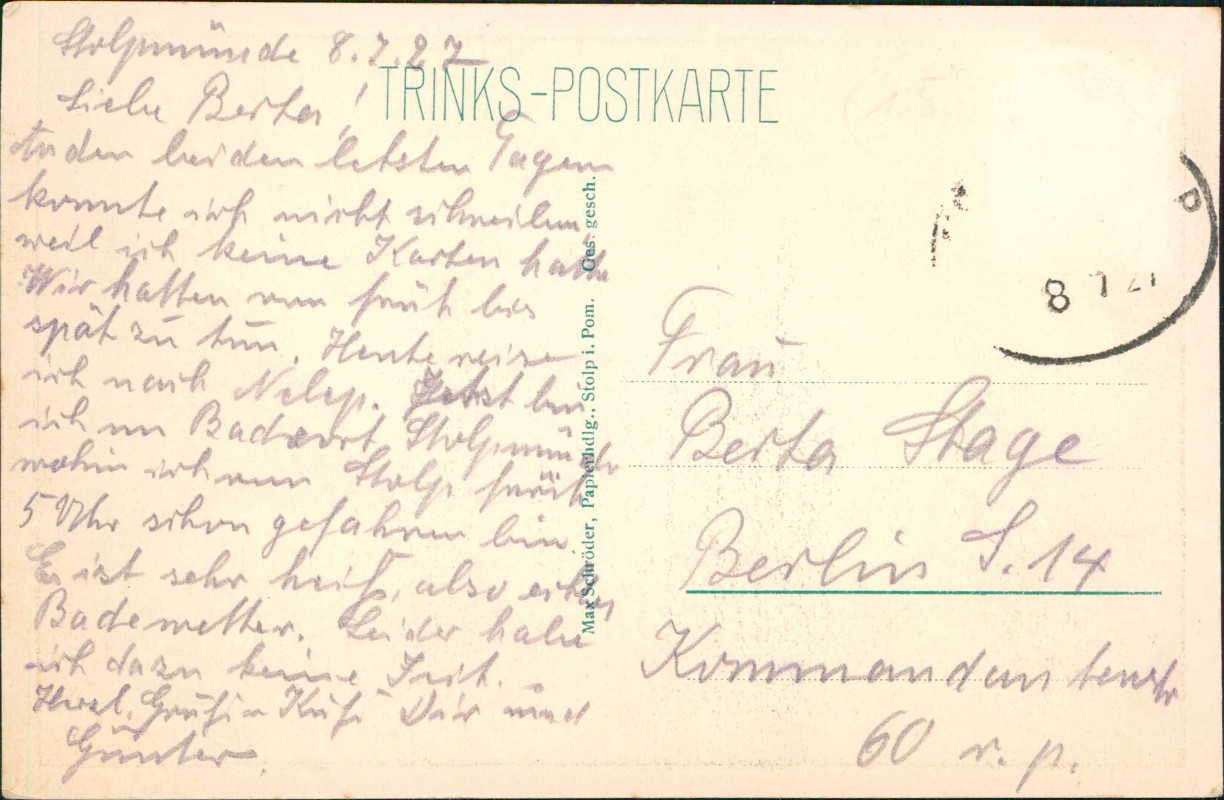 Stolpmünde 8.7.27
TRINKS-POSTKARTE
Liebe Berta!
An den beiden letzten Tagen
konnte ich nicht schreiben,
weil ich keine Karten hatte
Wir hatten von früh bis
spät zu tun. Heute reise
ich nach Nelep. Jetzt bin
ich im Badeort Stolpmünde
wohin ich von Stolp früh
5 Uhr schon gefahren bin.
Es ist sehr heiß, also echtes
Badewetter. Leider habe
ich dazu keine Zeit.
Herzl. Gruß u Kuß Dir und
Günter.
Max Schröder, Papierhdlg., Stolp i. Pom. Ges. gesch.
8 7 27
Frau
Berta Stage
Berlin S. 14
Kommandantenstr
60 v. p.